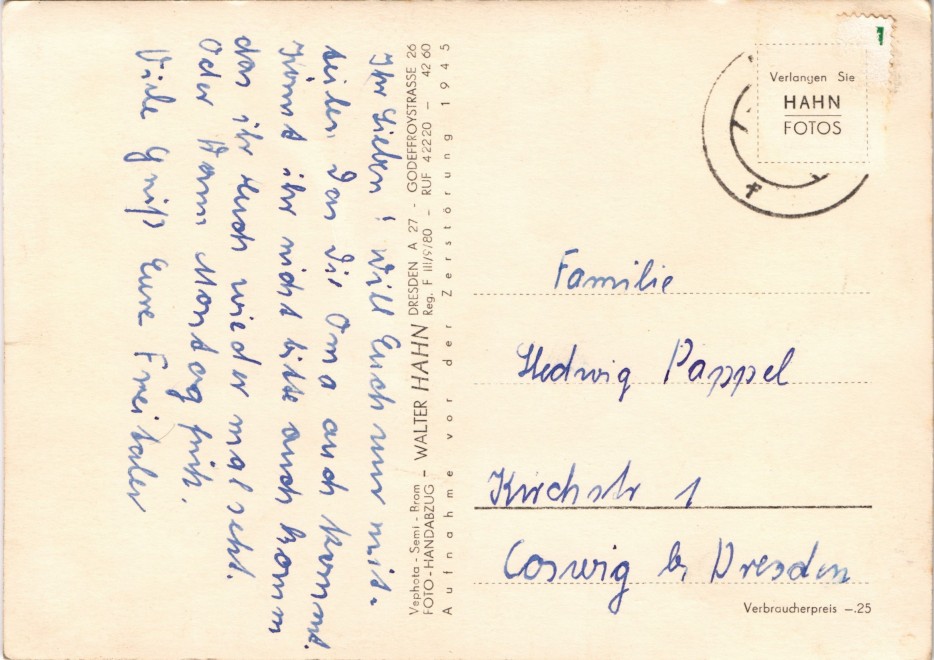 Ihr Lieben! Will Euch nur mit-
teilen das die Oma auch kommt.
Könnt ihr nicht bitte auch komm
das ihr Euch wieder mal seht.
Oder dann Montag früh.
Viele Grüße Eure Freitaler
Vephota - Semi - Brom
FOTO-HANDABZUG - WALTER HAHN DRESDEN A 27 - GODEFFROYSTRASSE 26
Reg. F III/9/80 - RUF 42220 - 42 60
Aufnahme vor der Zerstörung 1945
Verlangen Sie
HAHN
FOTOS
Familie
Hedwig Pappel
Kirchstr 1
Coswig b. Dresden
Verbraucherpreis -.25